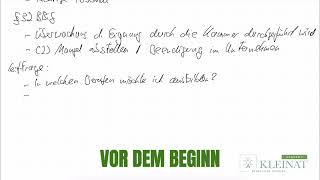 § 32 BBiG
- Überwachung d. Eignung durch die Kammer durchgeführt wird
- (2) Mangel abstellen / Beendigung im Unternehmen
Leitfrage:
- In welchen Berufen möchte ich ausbilden?
-
VOR DEM BEGINN
KLEINAT